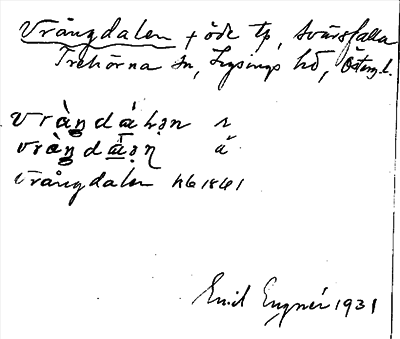 Vrångdalen, öde tp, Svärsfalla
Trehörna sn, Lysings hd, Österg. l.
vràŋdáɫən r
vràŋdáən ä
Vrångdalen hb 1861
Emil Engnér 1931